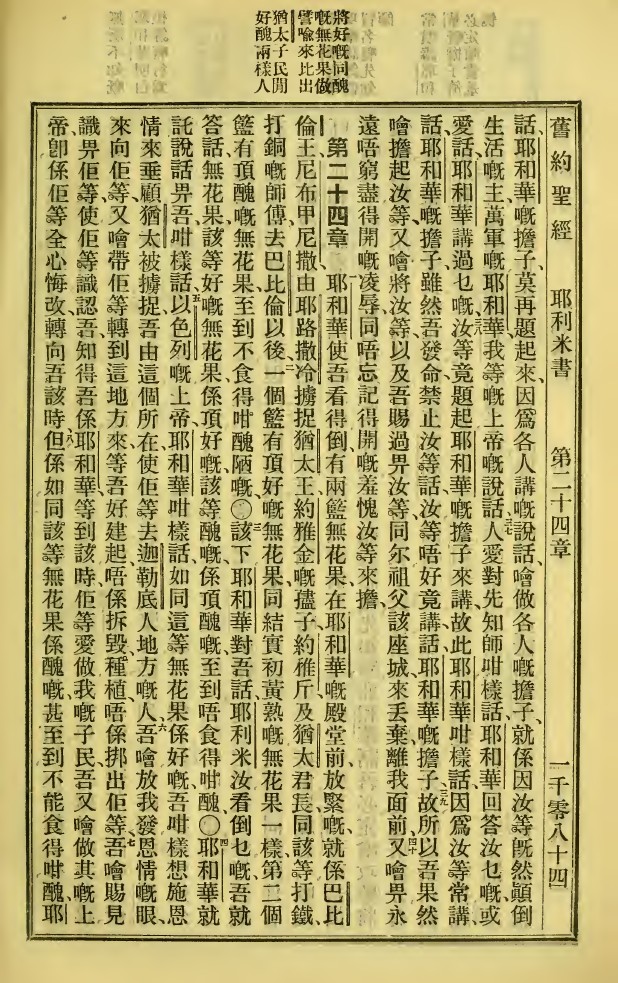 將好嘅同醜
嘅無花果做
譬喻來比出
猶太子民開
好醜兩樣人
舊約聖經 耶利米書 第二十四章 一千零八十四
話、耶和華嘅擔子、莫再題起來、因爲各人講嘅說話、噲做各人嘅擔子、就係因汝等旣然顚倒
生活嘅主萬軍嘅耶和華我等嘅上帝嘅說話、三七人愛對先知師咁樣話、耶和華回答汝乜嘅、或
愛話、耶和華講過乜嘅、三八汝等竟題起耶和華嘅擔子來講、故此耶和華咁樣話、因爲汝等常講、
話、耶和華嘅擔子、雖然吾發命禁止汝等話、汝等唔好竟講話、耶和華嘅擔子、三九故所以吾果然
噲擔起汝等、又噲將汝等、以及吾賜過畀汝等、同尔祖父該座城、來丢棄、離我面前、四十又噲畀永
遠唔窮盡得開嘅凌辱、同唔忘記得開嘅羞愧、汝等來擔、
第二十四章 一耶和華使吾看得倒、有兩籃無花果、在耶和華嘅殿堂前放緊嘅、就係巴比
倫王尼布甲尼撒、由耶路撒冷擄捉猶太王約雅金嘅儘子約雅斤、及猶太君長、同該等打鐵、
打銅嘅師傅、去巴比倫以後、二一個籃有頂好嘅無花果、同結實初黃熟嘅無花果一樣、第二個
籃有頂醜嘅無花果、至到不食得咁醜陋嘅、〇三該下耶和華對吾話、耶利米、汝看倒乜嘅、吾就
答話、無花果、該等好嘅無花果、係頂好嘅、該等醜嘅、係頂醜嘅、至到唔食得咁醜、〇四耶和華就
託說話畀吾、咁樣話、五以色列嘅上帝耶和華咁樣話、如同這等無花果係好嘅、吾咁樣想施恩
情來垂顧猶太被擄捉、吾由這個所在使佢等去迦勒底人地方嘅人、六吾噲放我發恩情嘅眼、
來向佢等、又噲帶佢等轉到這地方來、等吾好建起、唔係拆毀、種植、唔係挷出佢等、七吾噲賜見
識畀佢等、使佢等識認吾、知得吾係耶和華、等到該時佢等愛做我嘅子民、吾又噲做其嘅上
帝、卽係佢等全心悔改、轉向吾該時、八但係如同該等無花果係醜嘅、甚至到不能食得咁醜、耶